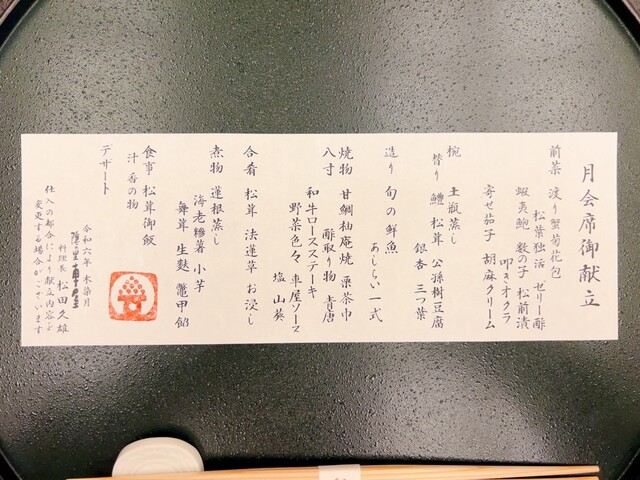 月会席御献立
前菜 渡り蟹菊花包
松葉独活 ゼリー酢
蝦夷鮑 数の子 松前漬
叩きオクラ
寄せ茄子 胡麻クリーム
椀 土瓶蒸し
替り 鱧 松茸 公孫樹豆腐
銀杏 三つ葉
造り 旬の鮮魚
あしらい一式
焼物 甘鯛柚庵焼 栗茶巾
酢取り物 青唐
八寸 和牛ロースステーキ
野菜色々 車屋ソース
塩 山葵
合肴 松茸 法蓮草 お浸し
煮物 蓮根蒸し
海老糝薯 小芋
舞茸 生麩 鼈甲餡
食事 松茸御飯
汁 香の物
デザート
令和六年 木染月
料理長 松田久雄
仕入の都合により献立内容を
変更する場合がございます